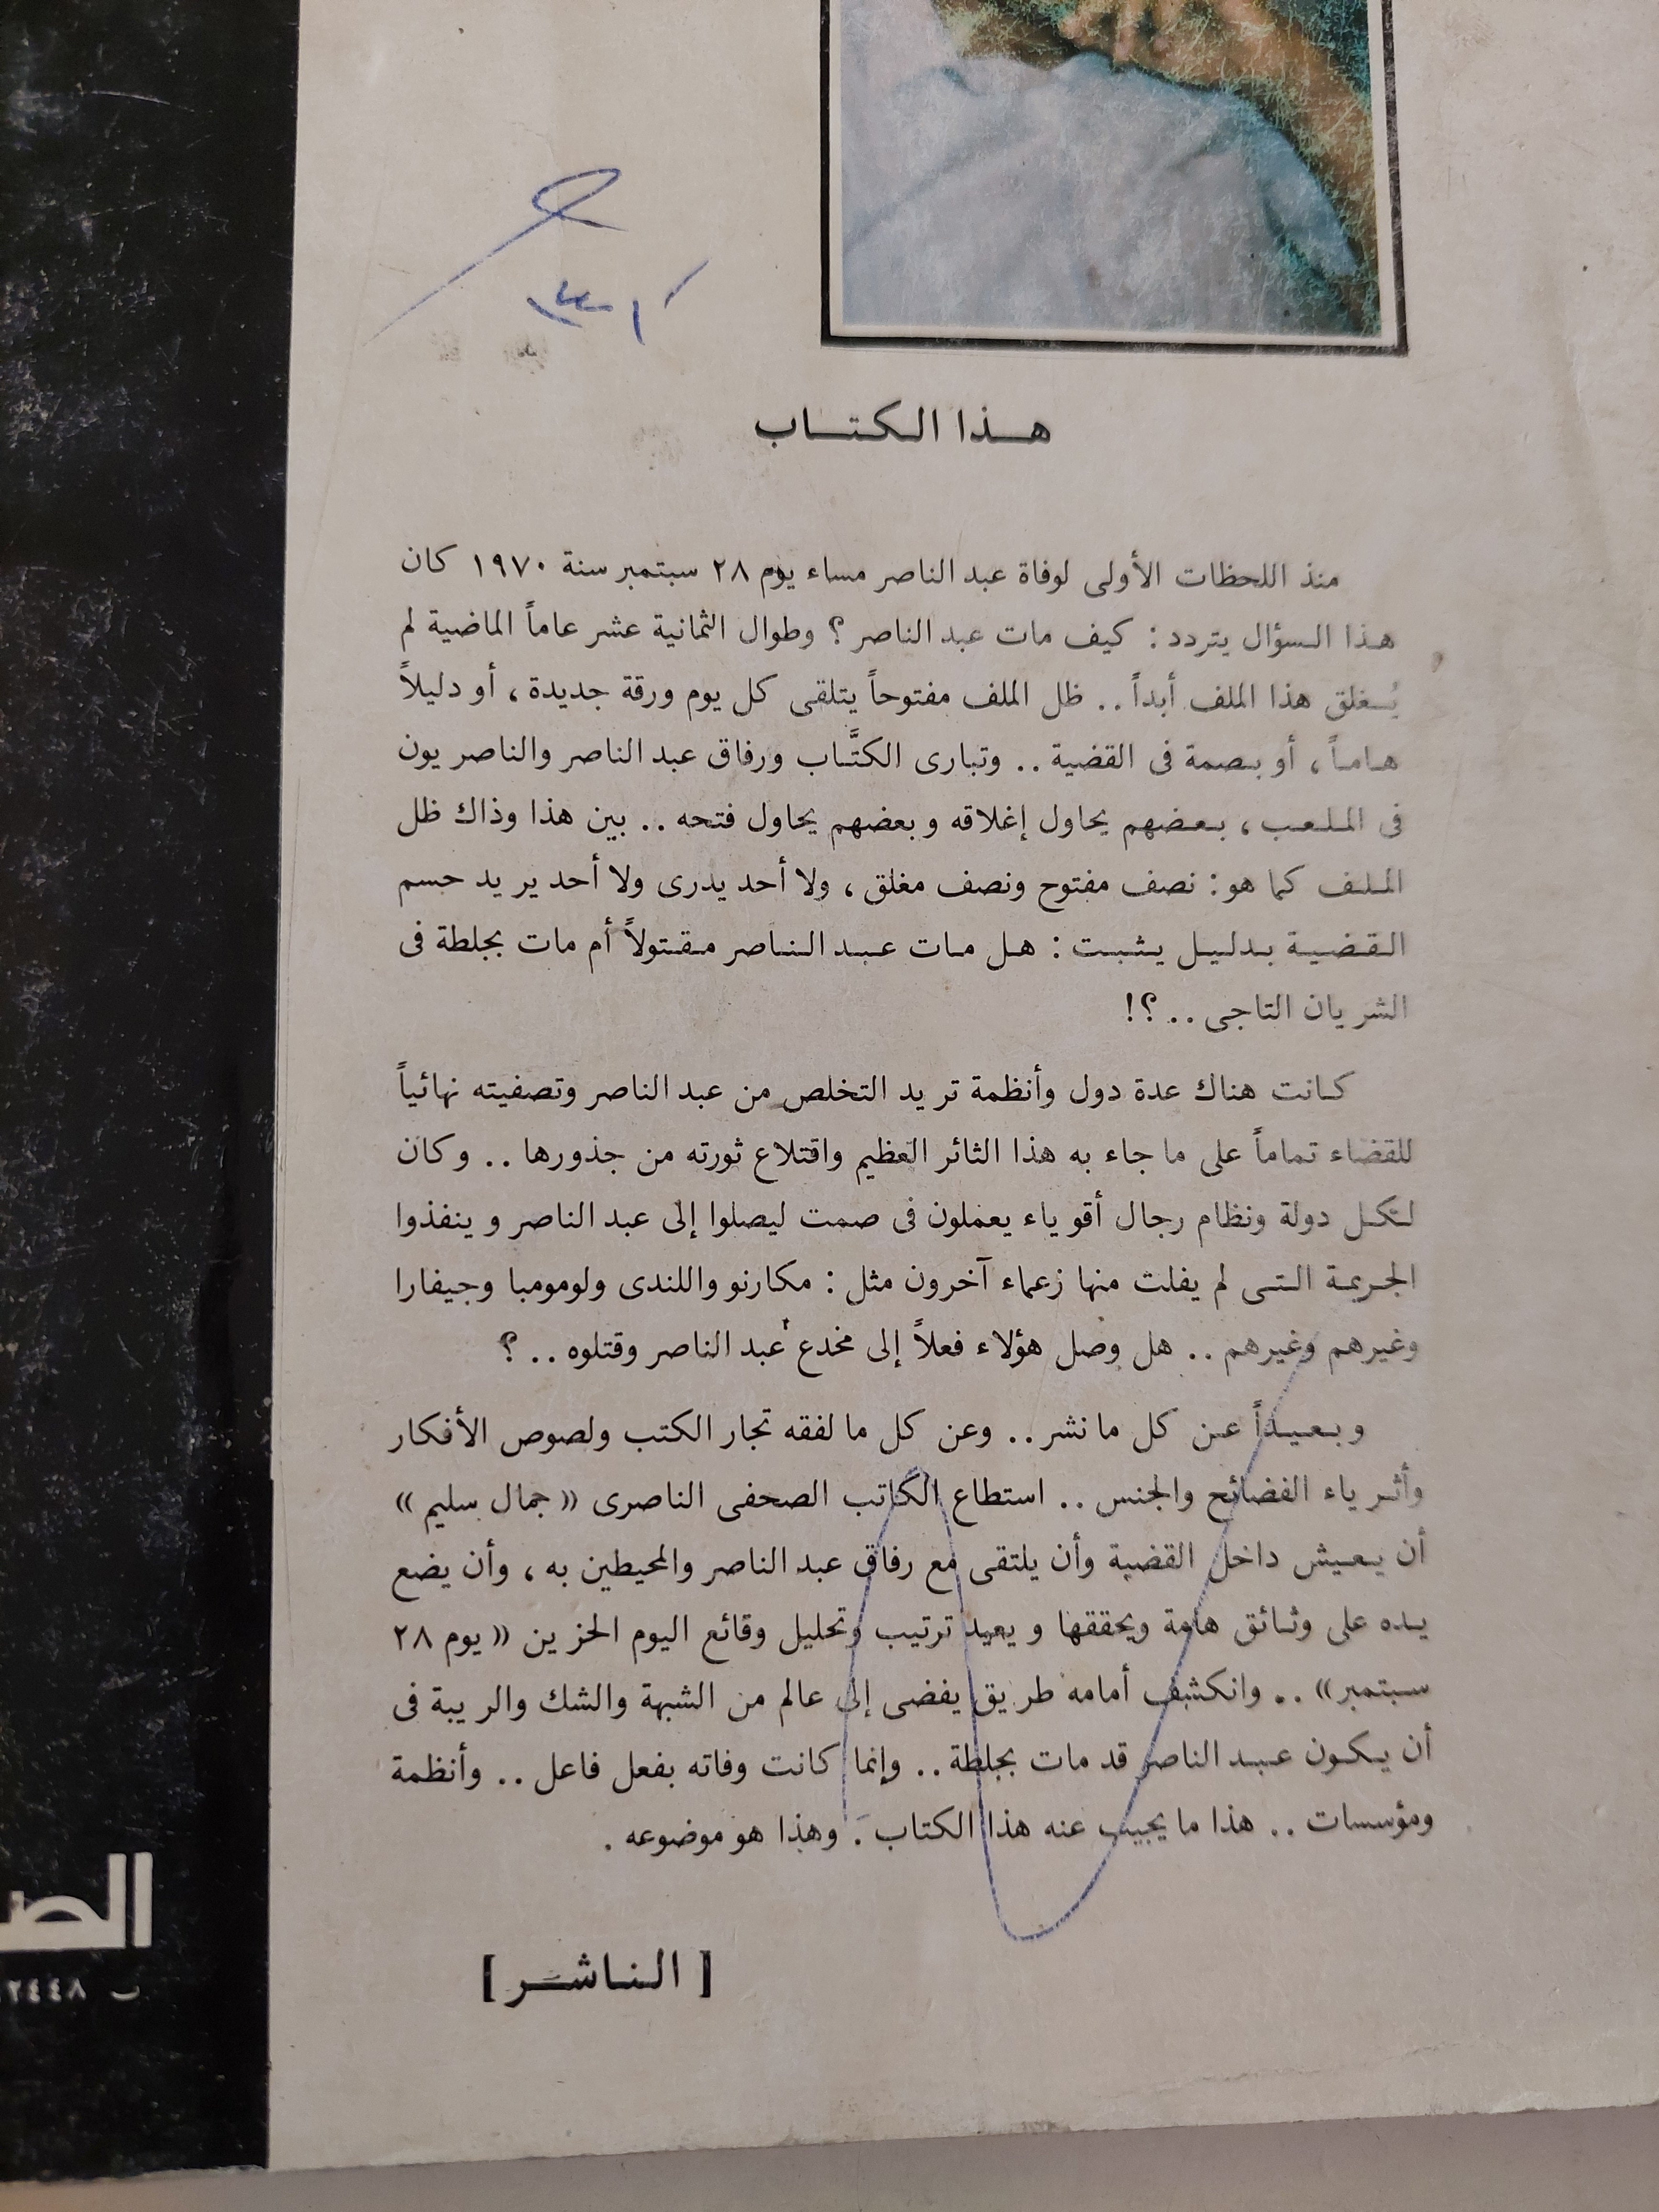 هذا الكتاب
منذ اللحظات الأولى لوفاة عبد الناصر مساء يوم ٢٨ سبتمبر سنة ١٩٧٠ كان
هذا السؤال يتردد : كيف مات عبد الناصر ؟ وطوال الثمانية عشر عاماً الماضية لم
يُغلق هذا الملف أبداً .. ظل الملف مفتوحاً يتلقى كل يوم ورقة جديدة ، أو دليلاً
هاماً ، أو بصمة فى القضية .. وتبارى الكتَّاب ورفاق عبد الناصر والناصريون
فى الملعب ، بعضهم يحاول إغلاقه وبعضهم يحاول فتحه .. بين هذا وذاك ظل
الملف كما هو : نصف مفتوح ونصف مغلق ، ولا أحد يدرى ولا أحد يريد حسم
القضية بدليل يثبت : هل مات عبد الناصر مقتولاً أم مات بجلطة فى
الشريان التاجى .. ؟!
كانت هناك عدة دول وأنظمة تريد التخلص من عبد الناصر وتصفيته نهائياً
للقضاء تماماً على ما جاء به هذا الثائر العظيم واقتلاع ثورته من جذورها .. وكان
لكل دولة ونظام رجال أقوياء يعملون فى صمت ليصلوا إلى عبد الناصر وينفذوا
الجريمة التى لم يفلت منها زعماء آخرون مثل : مكارنو واللندى ولومومبا وجيفارا
وغيرهم وغيرهم .. هل وصل هؤلاء فعلاً إلى مخدع عبد الناصر وقتلوه .. ؟
وبعيداً عن كل ما نشر .. وعن كل ما لفقه تجار الكتب ولصوص الأفكار
وأثرياء الفضائح والجنس .. استطاع الكاتب الصحفى الناصرى « جمال سليم »
أن يعيش داخل القضية وأن يلتقى مع رفاق عبد الناصر والمحيطين به ، وأن يضع
يده على وثائق هامة ويحققها ويعيد ترتيب وتحليل وقائع اليوم الحزين « يوم ٢٨
سبتمبر » .. وانكشف أمامه طريق يفضى إلى عالم من الشبهة والشك والريبة فى
أن يكون عبد الناصر قد مات بجلطة .. وإنما كانت وفاته بفعل فاعل .. وأنظمة
ومؤسسات .. هذا ما يجيب عنه هذا الكتاب . وهذا هو موضوعه .
[ الناشر ]
الص
ت ٢٤٤٨